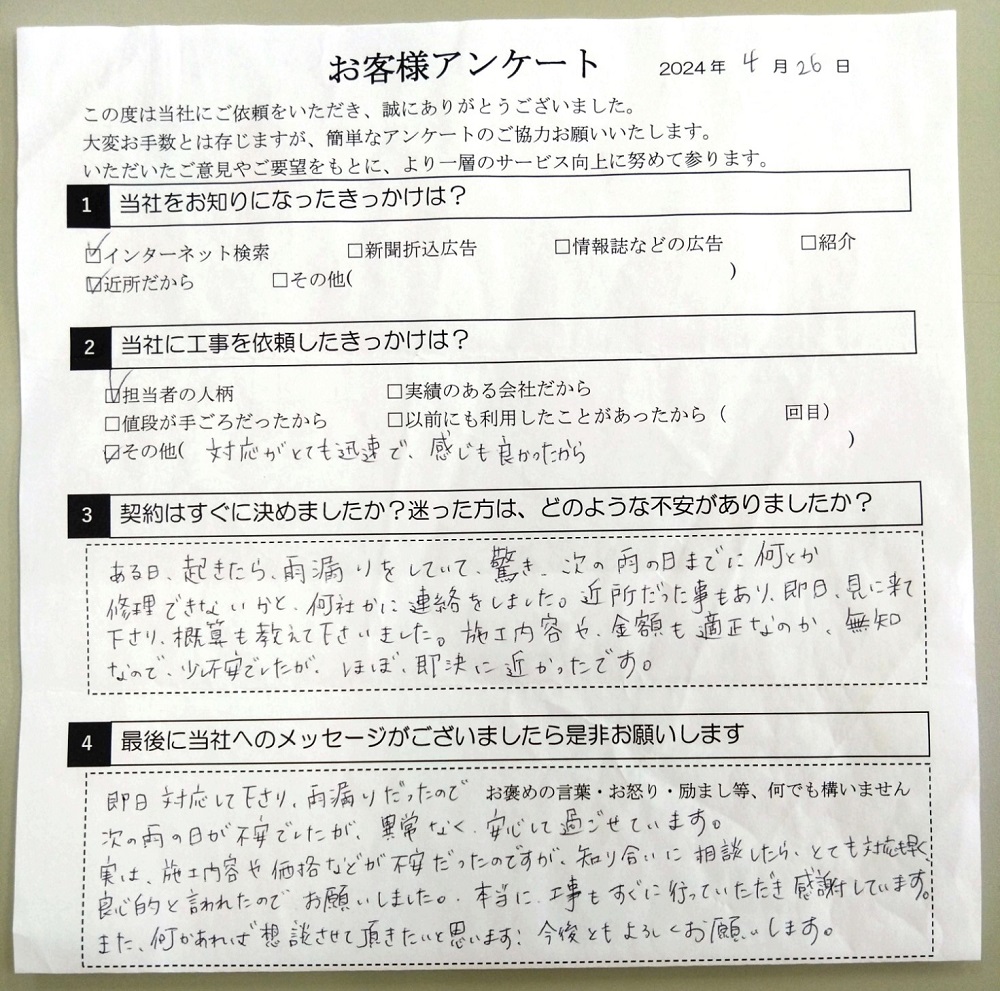 お客様アンケート 2024年 4月26日
この度は当社にご依頼をいただき、誠にありがとうございました。
大変お手数とは存じますが、簡単なアンケートのご協力お願いいたします。
いただいたご意見やご要望をもとに、より一層のサービス向上に努めて参ります。
1 当社をお知りになったきっかけは？
☑インターネット検索 □新聞折込広告 □情報誌などの広告 □紹介
☑近所だから □その他( )
2 当社に工事を依頼したきっかけは？
☑担当者の人柄 □実績のある会社だから
□値段が手ごろだったから □以前にも利用したことがあったから（ 回目）
☑その他( 対応がとても迅速で、感じも良かったから )
3 契約はすぐに決めましたか？迷った方は、どのような不安がありましたか？
ある日、起きたら、雨漏りをしていて、驚き、次の雨の日までに何とか
修理できないかと、何社かに連絡をしました。近所だった事もあり、即日、見に来て
下さり、概算も教えて下さいました。施工内容や、金額も適正なのか、無知
なので、少し不安でしたが、ほぼ、即決に近かったです。
4 最後に当社へのメッセージがございましたら是非お願いします
お褒めの言葉・お怒り・励まし等、何でも構いません
即日対応して下さり、雨漏りだったので
次の雨の日が不安でしたが、異常なく、安心して過ごせています。
実は、施工内容や価格などが不安だったのですが、知り合いに相談したら、とても対応も早く、
良心的と言われたのでお願いしました。本当に、工事もすぐに行っていただき感謝しています。
また、何かあれば想談させて頂きたいと思います！今後ともよろしくお願いします。